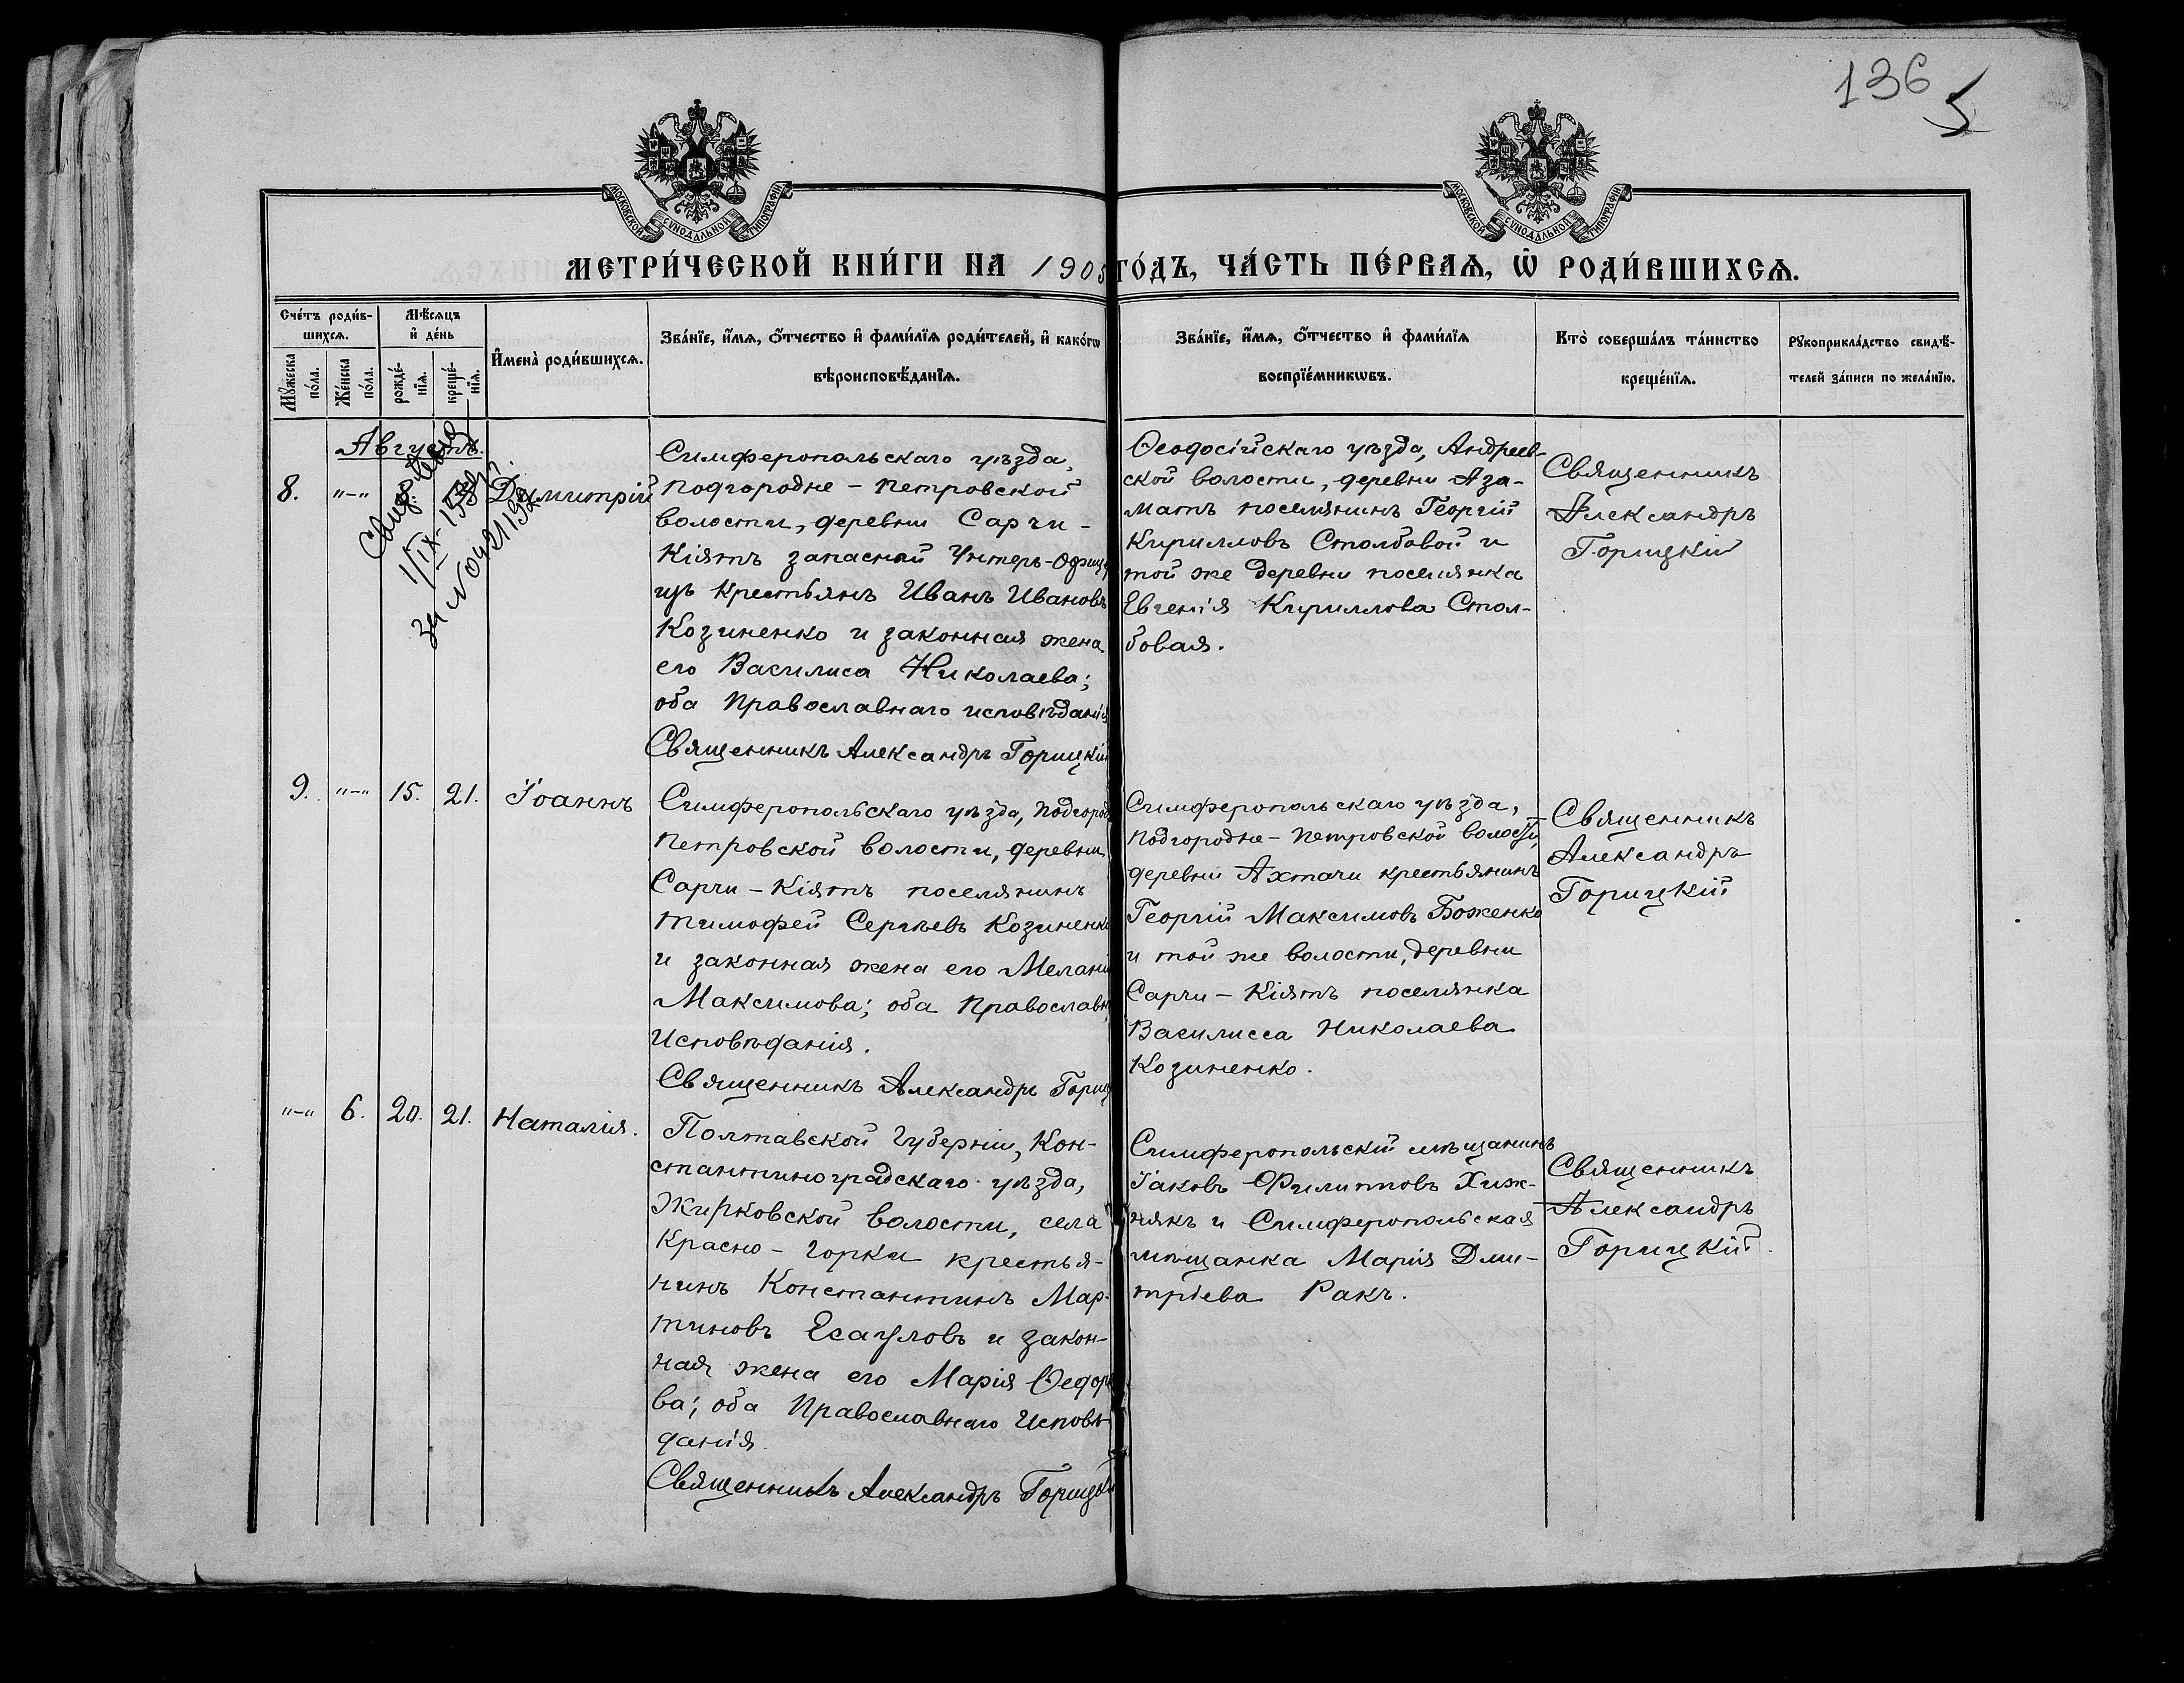 136
5
МОСКОВСКОЙ СУНОДАЛЬНОЙ ТИПОГРАФІИ
МОСКОВСКОЙ СУНОДАЛЬНОЙ ТИПОГРАФІИ
МЕТРИ́ЧЕСКОЙ КНИ́ГИ НА 1905 ГО́ДЪ, ЧА́СТЬ ПЕ́РВАѦ, Ѡ҆ РОДИ́ВШИХСѦ.
Сче́тъ роди́в-
шихсѧ.
Мꙋ́жеска по́ла.
Же́нска по́ла.
Мѣ́сѧцъ
и҆ де́нь
рожде́-
нїѧ.
креще́-
нїѧ.
И҆мена̀ роди́вшихсѧ.
Зва́нїе, и҆́мѧ, ѻ҆́тчество и҆ фами́лїѧ роди́телей, и҆ како́гѡ
вѣроисповѣ́данїѧ.
Зва́нїе, и҆́мѧ, ѻ҆́тчество и҆ фами́лїѧ
воспрїе́мникѡвъ.
Кто̀ соверша́лъ та́инство
креще́нїѧ.
Рꙋкоприкла́дство свидѣ́-
телей за́писи по жела́нїю.
Августъ.
8. "–" Димитрій
Симферопольскаго уѣзда,
Подгородне – Петровской
волости, деревни Сарчи –
Кіятъ запасной Унтеръ-Офице
изъ крестьянъ Иванъ Ивановъ
Козиненко и законная жена
его Василиса Николаева;
оба Православнаго исповѣданія
Священникъ Александръ Горицкій
Ѳеодосійскаго уѣзда, Андреев-
ской волости, деревни Аза-
матъ поселянинъ Георгій
Кирилловъ Столбовой и
той же деревни поселянка
Евгенія Кириллова Стол-
бовая.
Священникъ
Александръ
Горицкій
9. "–" 15. 21. Іоаннъ
Симферопольскаго уѣзда, Подгород
Петровской волости, деревни
Сарчи – Кіятъ поселянинъ
Тимофей Сергѣевъ Козиненко
и законная жена его Мелані
Максимова; оба Православн
Исповѣданія.
Священникъ Александръ Гориц
Симферопольскаго уѣзда,
Подгородне – Петровской волости,
деревни Ахтачи крестьянинъ
Георгій Максимовъ Боженко
и той же волости, деревни
Сарчи – Кіятъ поселянка
Василисса Николаева
Козиненко.
Священникъ
Александръ
Горицкій
"–" 6. 20. 21. Наталія.
Полтавской Губерніи, Кон-
стантиноградскаго уѣзда,
Жирковской волости, села
Красно – Горки крестья-
нинъ Константинъ Мар-
тиновъ Есауловъ и закон-
ная жена его Марія Ѳедоро
ва; оба Православнаго Исповѣ-
данія.
Священникъ Александръ Горицкій
Симферопольскій мѣщанинъ
Іаковъ Филипповъ Хиж-
някъ и Симферопольская
мѣщанка Марія Дми-
тріева Ракъ.
Священникъ
Александръ
Горицкій.